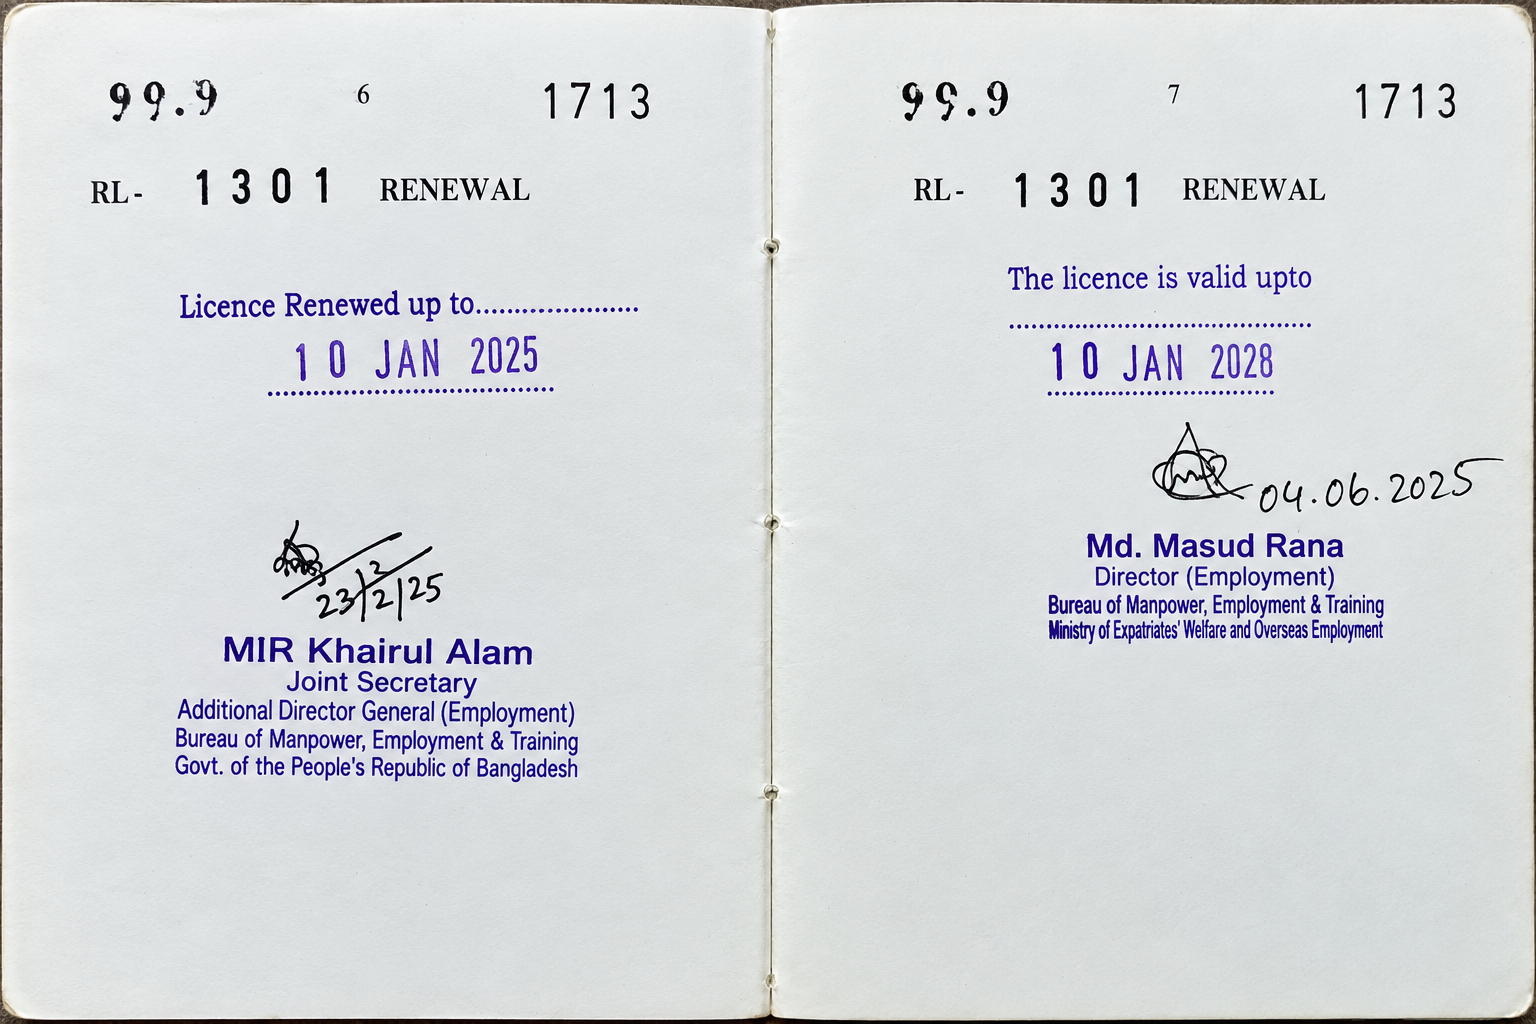 99.9 6 1713
RL- 1301 RENEWAL
Licence Renewed up to.....................
10 JAN 2025
23/2/25
MIR Khairul Alam
Joint Secretary
Additional Director General (Employment)
Bureau of Manpower, Employment & Training
Govt. of the People's Republic of Bangladesh
99.9 7 1713
RL- 1301 RENEWAL
The licence is valid upto
10 JAN 2028
04.06.2025
Md. Masud Rana
Director (Employment)
Bureau of Manpower, Employment & Training
Ministry of Expatriates' Welfare and Overseas Employment